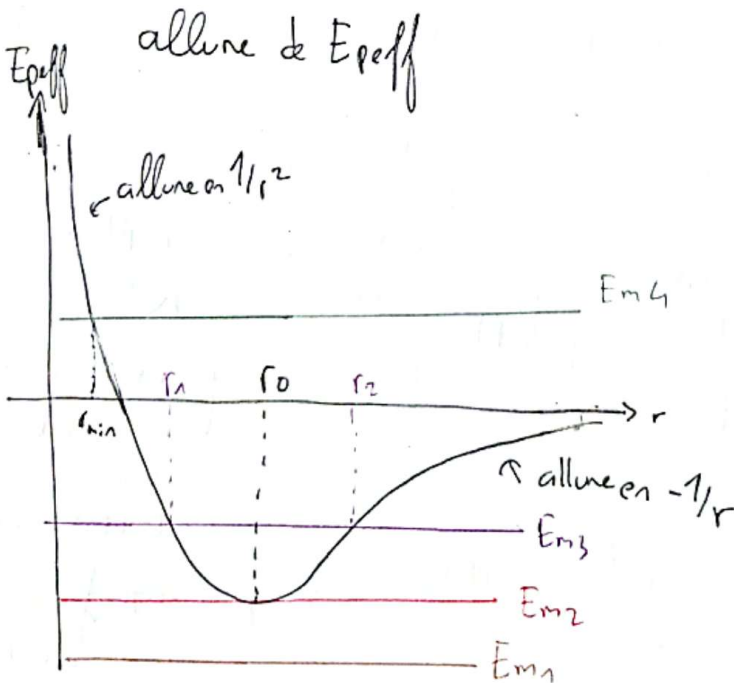 allure de Epeff
Epeff
allure en 1/r²
Em4
r1 r0 r2
rmin
r
allure en -1/r
Em3
Em2
Em1